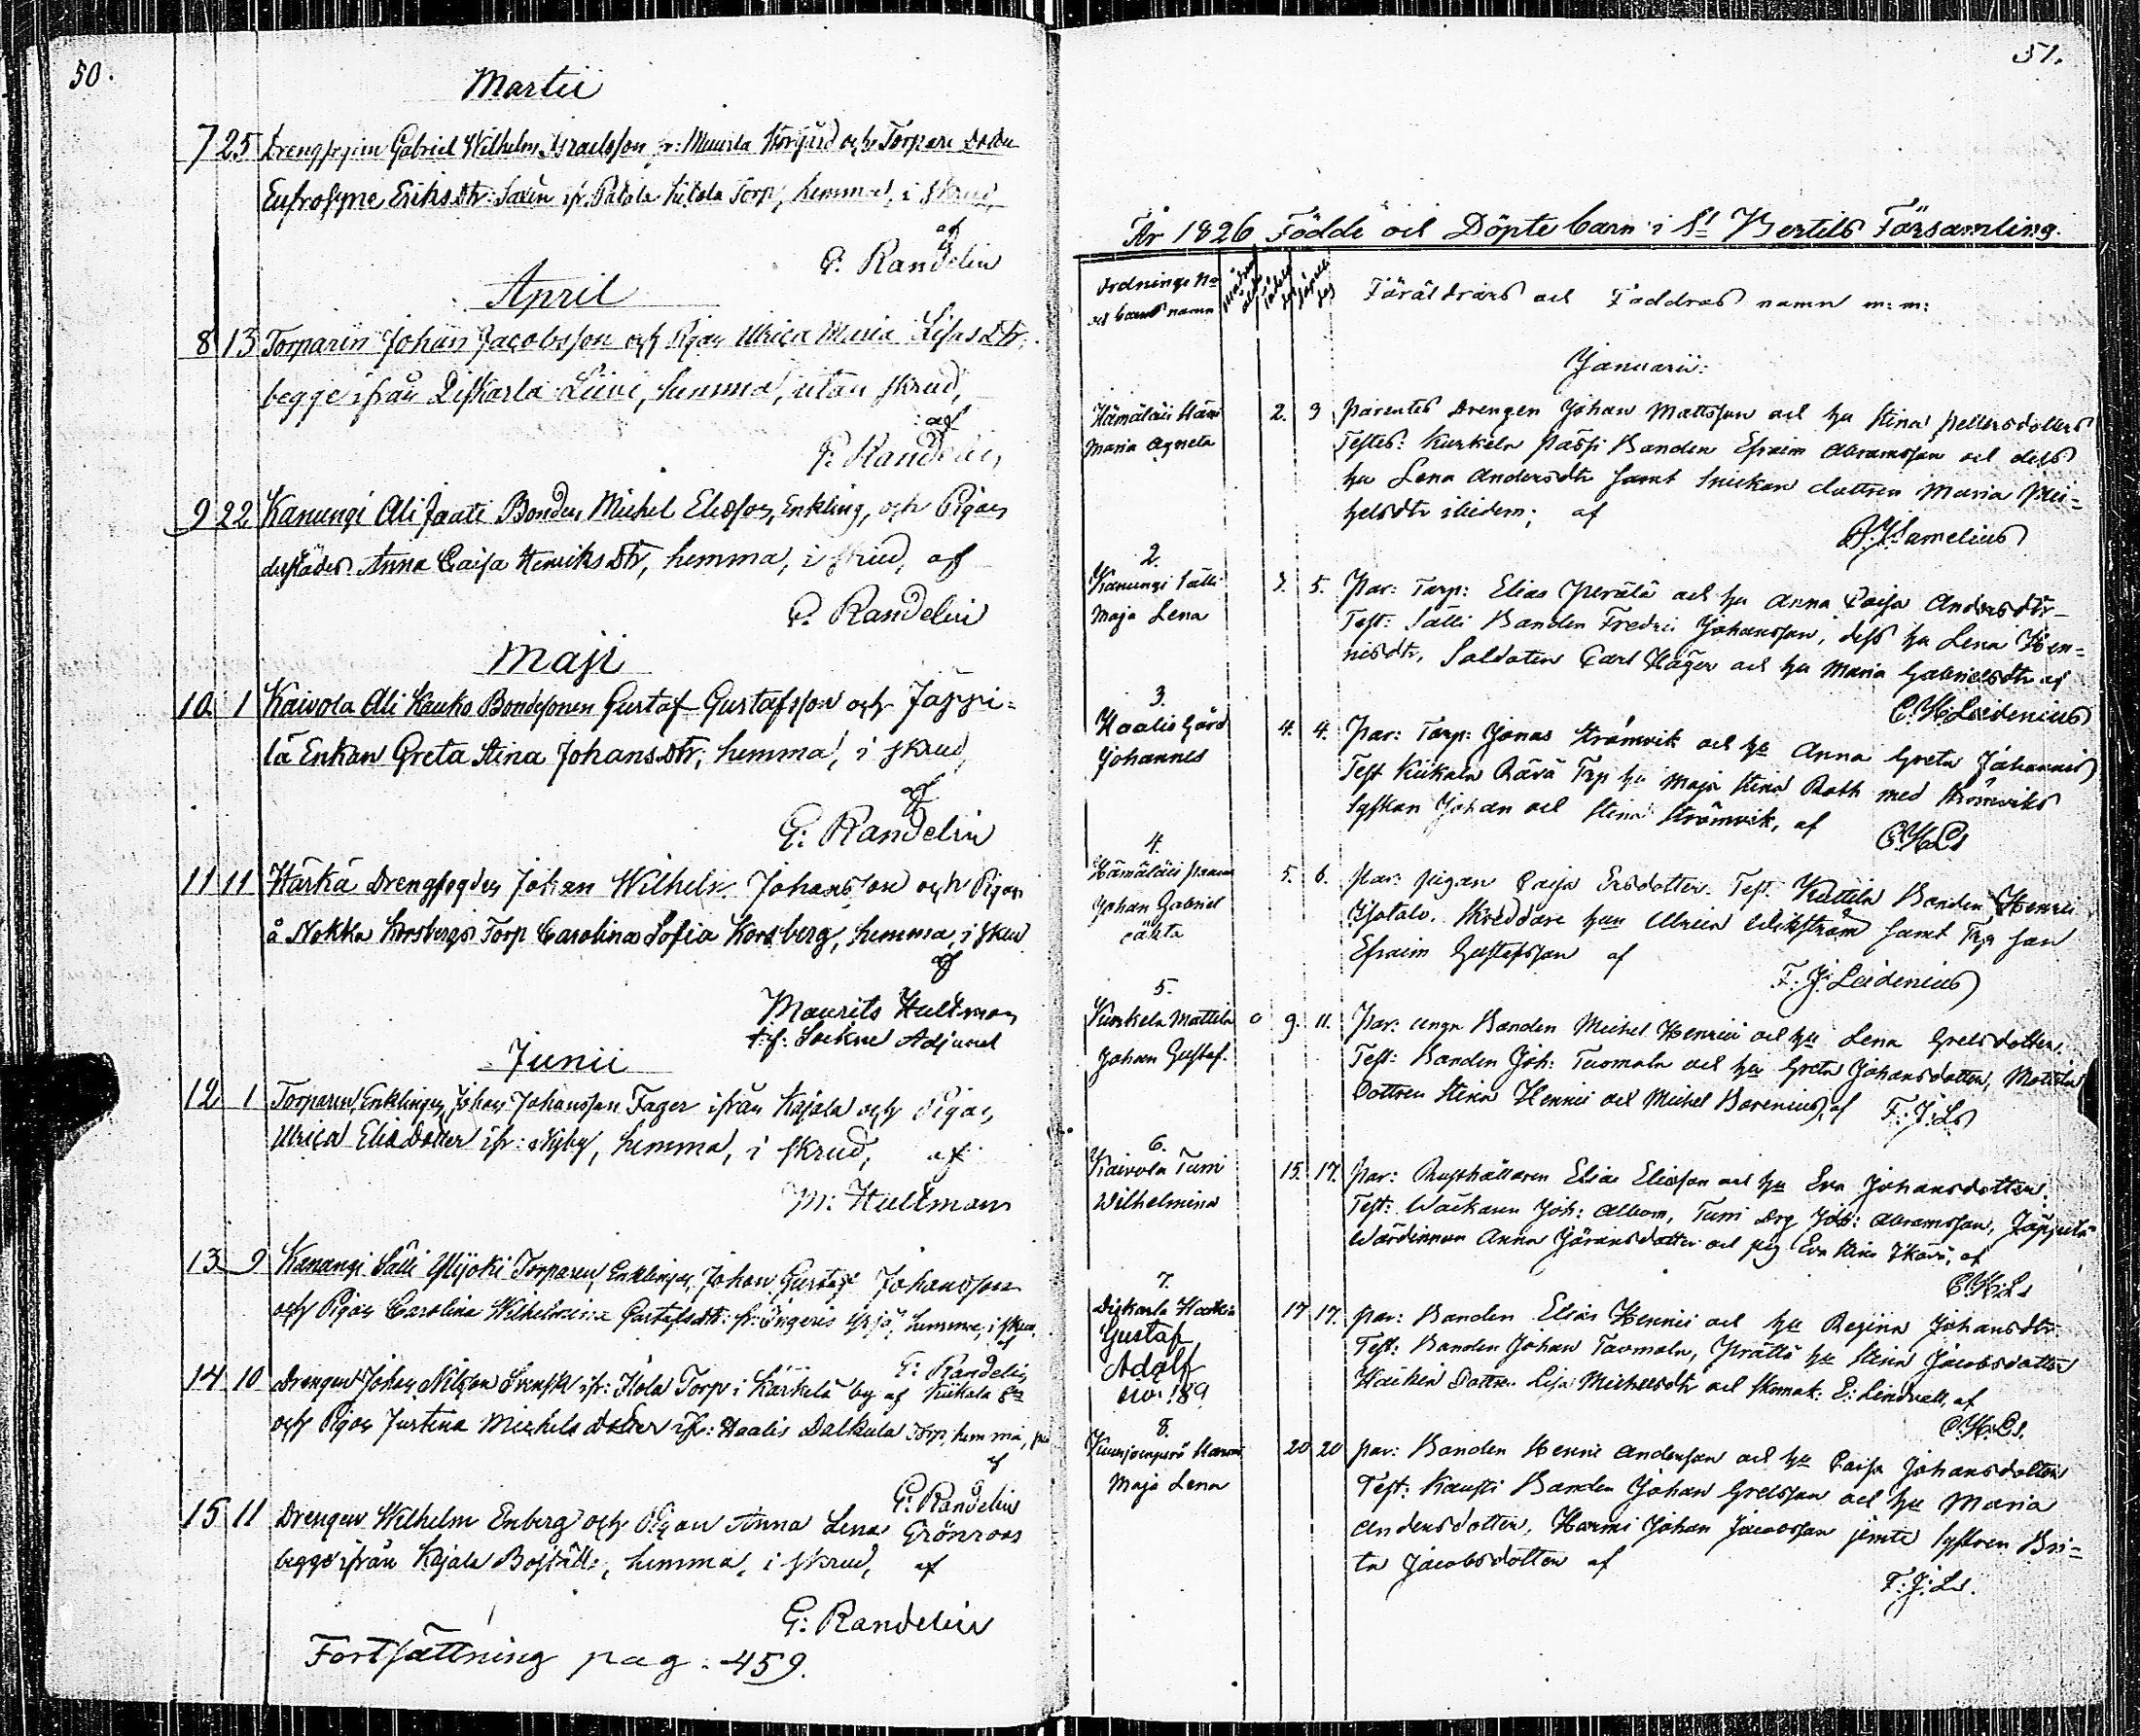 50.
Martii
7 25 Drengen Gabriel Wilhelm Israelsson fr: Muurla och Torpare
Eufrosyne Eriks Dtr: ifr. Patola Torp, hemma, i skrud,
af
G. Randelin
April
8 13 Torparen Johan Jacobsson och Pigan Ulrica Maria Dtr.
begge ifrån Diskarla Liivi, hemma, utan skrud,
af
G. Randelin
9 22 Kanungi Ali Jaati Bonden Michel Eliasson, Enkling, och Pigan
destädes Anna Caisa Henriks Dtr, hemma, i skrud, af
G. Randelin
Maji
10 1 Kaivola Ali Kauko Bondesonen Gustaf Gustafsson och Jäppi=
lä Enkan Greta Stina Johans Dtr, hemma, i skrud,
af
G: Randelin
11 11 Härkä Drengfogden Johan Wilhelm Johansson och Pigan
å Nokka Korsbergs Torp Carolina Sofia Korsberg, hemma, i skrud
af
Maurits Hultman
t.f. Sockne Adjunct
Junii
12 1 Torparen, Enklingen Johan Johansson Fager ifrån Kajala och Pigan
Ulrica Elis Dotter ifr: Nyby, hemma, i skrud, af
M: Hultman
13 9 Kanungi Sälli Ylijoki Torparen, Enklingen, Johan Gustaf Johansson
och Pigan Carolina Wilhelmina Gustafs Dtr: fr: Ingeris, hemma, i skrud,
af
G: Randelin
14 10 Drengen Johan Nilsson Svensk ifr: Torp i Kärkelä by af Kiikala
och Pigan Justina Michels Dotter ifr: Haalis Dalkula Torp, hemma,
af
G: Randelin
15 11 Drengen Wilhelm Enberg och Pigan Anna Lena Grönroos
begge ifrån Kajala Boställe, hemma, i skrud, af
G: Randelin
Fortsättning pag. 459.
51.
År 1826 Födde och Döpte barn i St Bertils Församling.
Ordnings No
och barnets namn
Föräldrars och Faddras namn m: m:
Januarii:
Hämäläis
Maria Agneta
2. 3 parentes Drengen Johan Mattsson och hu Stina
Testes: Kurkela Passi Bonden Efraim Abramsson och dess
hu Lena Andersdtr samt dottren Maria Mi=
helsdtr ibidem; af
2.
Kanungi Sälli
Maja Lena
3. 5. Par: Torp: Elias Yperälä och hu Anna Caisa Andersdtr
Test: Sälli Bonden Fredric Johansson, dess hu Lena Hen=
ricsdtr, Soldaten Carl Häger och hu Maria Gabrielsdtr af
C.H. Leidenius
3.
Haalis Gård
Johannes
4. 4. Par: Torp: Jonas Strömvik och hu Anna Greta Johannis
Test Kiikala Rävä Trp hu Maja Stina Roth med Strömviks
Syskon Johan och Stina Strömvik, af C.H.Ls
4.
Hämäläis
Johan Gabriel
oäkta
5. 6. Par: pigan Caisa Ersdotter. Test. Kattila Bonden Henric
Isotalo. Skräddare hun Ulrica Wikström samt Trp son
Efraim Gustafsson af
F. J. Leidenius
5.
Kurkela Mattila
Johan Gustaf.
9. 11. Par: unga Bonden Michel Henrici och hu Lena Grels dotter.
Test: Bonden Joh: Tuomola och hu Greta Johans dotter, Mattila
Dottren Stina Henrici och Michel Borenius, af F: J: Ls
6.
Kaivola Turri
Wilhelmina
15. 17. Par: Rusthållaren Elias Eliasson och hu Eva Johansdotter.
Test: Joh: Albom, Turri drg Joh: Abramsson, Jäppilä
Wärdinnan Anna Göransdotter och pig Eva Stina, af
C.H.Ls
7.
Diskarla
Gustaf
Adolf
17 17. Par: Bonden Elias Henrici och hu Regina Johansdtr
Test: Bonden Johan Tavmola, Yrättä hu Stina Jacobsdotter
Dotter Lisa Michelsdtr och Skomak: E: Lindvall, af
C.H.Ls.
8.
Maja Lena
20 20 par: Bonden Henric Andersson och hu Caisa Johans dotter
Test: Kausti Bonden Johan Grelsson och hu Maria
Andersdotter, Hannni Johan Jacobsson jemte Systren Bri=
ta Jacobsdotter af
F: J: Ls.